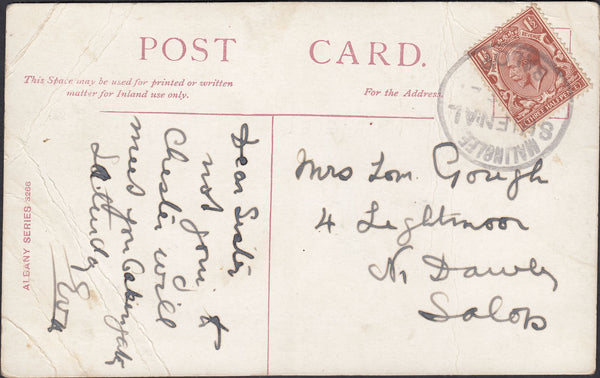 POST CARD.
This Space may be used for printed or written
matter for Inland use only.
For the Address
Dear Sister
not going to
Chester will
meet you Oakengates
Saturday
Eva
Mrs Tom. Gough
4 Lightmoor
Nr Dawley
Salop
ALBANY SERIES 3266
MALINSLEE